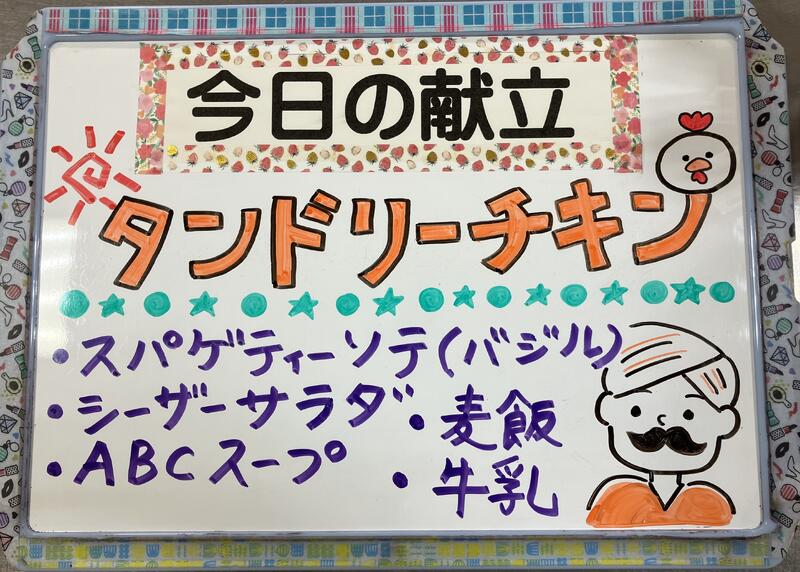 今日の献立
タンドリーチキン
・スパゲティーソテ(バジル)
・シーザーサラダ ・麦飯
・ABCスープ ・牛乳